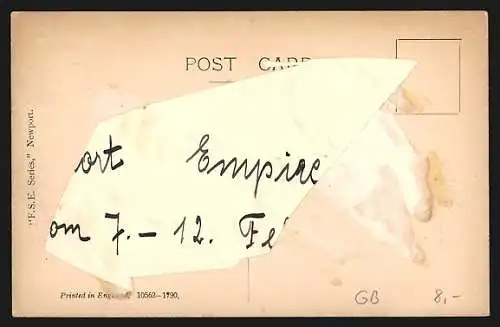 POST CARD
"F.S.E. Series," Newport.
ort Empire
om 7. – 12. Fe
Printed in England 10562–1790.
GB 8,-